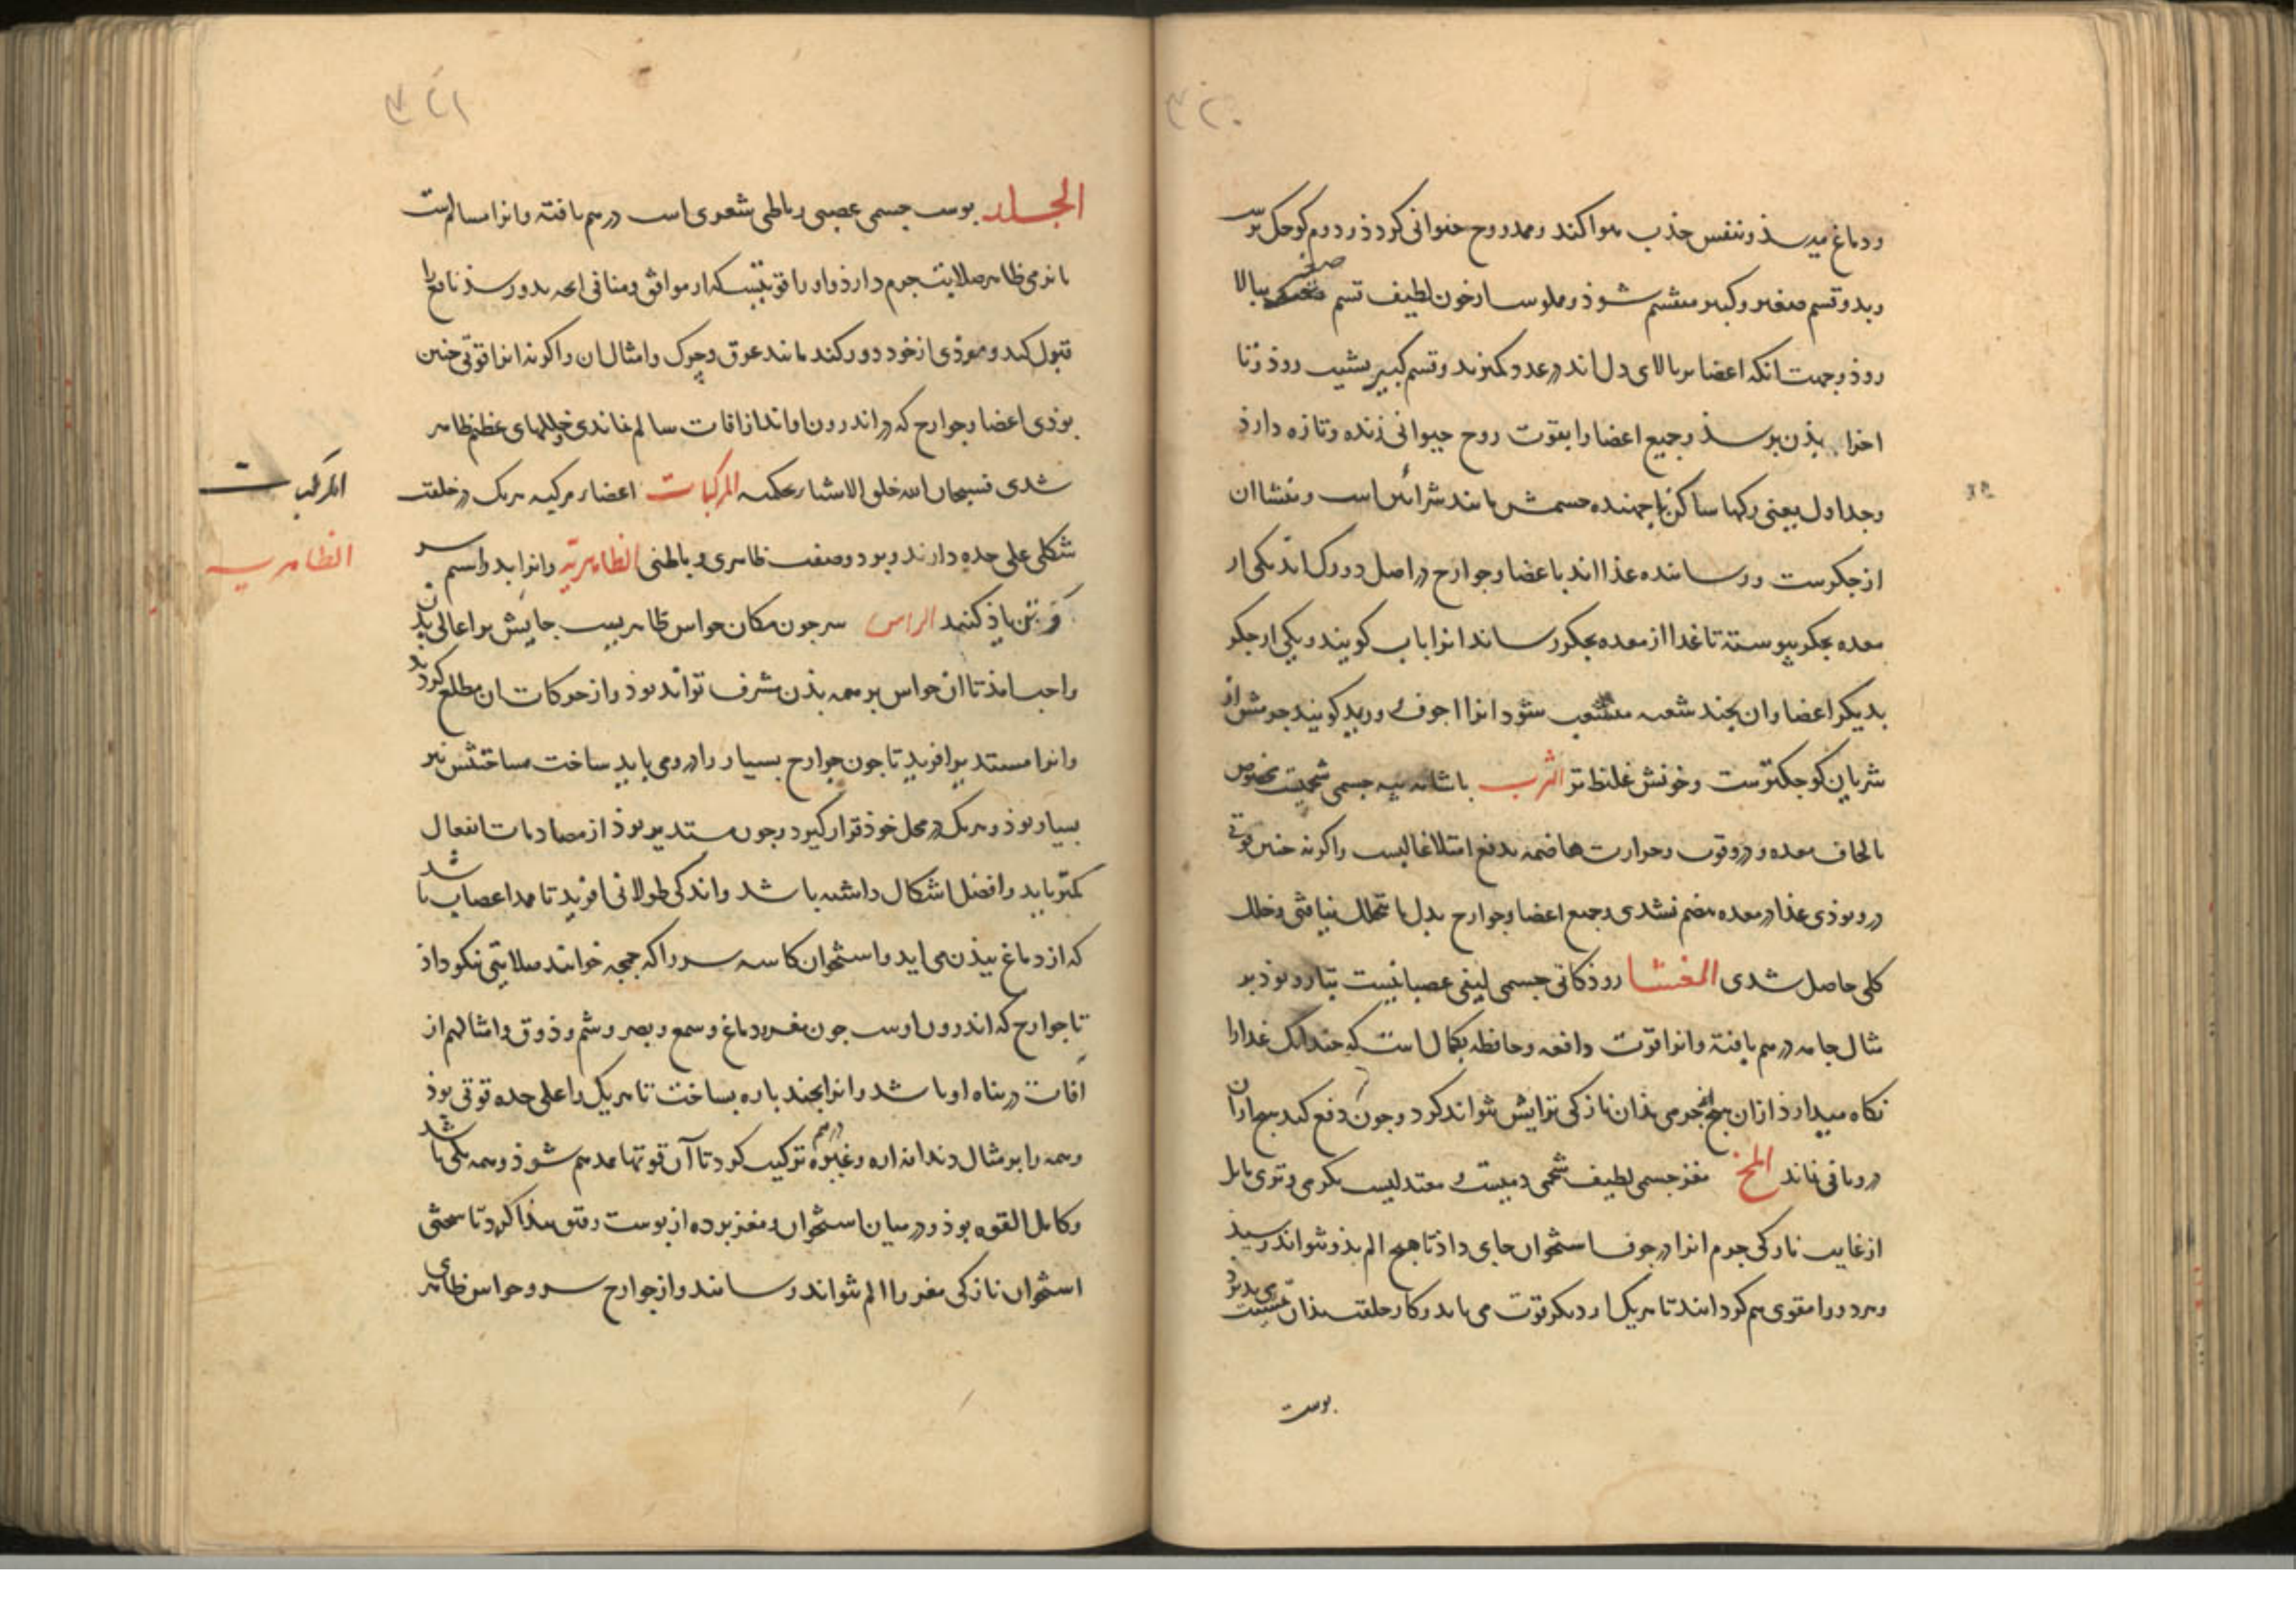 ۳۲۰
ودماغ میرسذ و بتنفس جذب هوا کند و ممد روح حیوانی کردذ و دوم کوجک ترست
وبدو قسم صغیر و کبیر منقسم شوذ و مملو ساز خون لطیف قسم صغیر ببالا
روذ و جهت انکه اعضا بر بالای دل اند در عدد کمترند و قسم کبیر بشیب روذ و تا
اخر بذن برسذ و جمیع اعضا را بقوت روح حیوانی زنده و تازه دارذ
وجداول یعنی رکها ساکن ناجهنده جسمش مانند شرائین است و منشا ان
از جکرست و رساننده غذا اند باعضا و جوارح در اصل دو رک اند یکی از
معده بجکر پیوسته تا غذا از معده بجکر رساند انرا باب کویند و یکی از جکر
بدیکر اعضا و ان بجند شعبه منشعب شود انرا اجوف و ورید کویند جرمش از
شریان کوجکترست و خونش غلیظ تر الثرب جسمی شحمیست مخصوص
بالحاف معده و درو قوت و حرارت هاضمه بدفع امتلا غالبست و اکرنه جنین قوتی
درو بوذی غذا در معده هضم نشدی و جمیع اعضا و جوارح بدل ما تحلل نیافتی و خلل
کلی حاصل شدی الغشا روذکانی جسمی لیفی عصبانیست بتار و بوذ بر
مثال جامه درهم بافته و انرا قوت دافعه و حافظه بکمال است که جندانک غذا را
نکاه میدارذ ازان هیج بجرمی بذان نازکی ترایش نتواند کرد و جون دفع کند هیج ازان
درو باقی نماند المخ مغز جسمی لطیف شحمی دمیست معتدلیست بکرمی و تری مایل
از غایت نازکی جرم انرا در جوف استخوان جای داذ تا هیج الم بذو نتواند رسیذ
و هر دو را مقوی هم کردانند تا هریک از دیکر قوت می یابد و کار خلقت بذان
بوست
۳۲۱
الجلد بوست جسمی عصبی رباطی شعری است درهم بافته و انرا مسالم است
با نرمی ظاهر صلابت جرم دارذ و او را قوتیست که از موافق و منافی انجه بدو رسذ نافع را
قبول کند و موذی از خود دور کند مانند عرق و جرک و امثال ان و اکرنه انرا قوتی جنین
بوذی اعضا و جوارح که در اندرون اواند از افات سالم نماندی و خللهای عظیم ظاهر
شدی فسبحان الله خلق الاشیاء بحکمه المرکبات اعضاء مرکبه هریک در خلقت
شکلی علی حده دارند و بر دو صنف ظاهری و باطنی الظاهریة و انرا بدو اسم سر
و تن یاذ کنند الراس سر جون مکان حواس ظاهریست جایش بر اعالی بدن
واجب امذ تا ان حواس بر همه بذن مشرف تواند بوذ و از حرکات ان مطلع کردد
وانرا مستدیر افرید تا جون جوارح بسیار را درو می باید ساخت مساحتش نیز
بسیار بوذ و هریک در محل خوذ قرار کیرد و جون مستدیر بوذ از مصادمات انفعال
کمتر یابد و افضل اشکال داشته باشد و اندکی طولانی افرید تا ممد اعصاب باشد
که از دماغ ببذن می اید و استخوان کاسه سر را که جمجه خوانند صلابتی نیکو داذ
تا جوارح که اندرون اوست جون مغز و دماغ و سمع و بصر و شم و ذوق و امثالهم از
افات در بناه او باشد و انرا بجند باره بساخت تا هریک را علی حده قوتی بوذ
وهمه را بر مثال دندانه اره و غیره درهم ترکیب کرد تا آن قوتها ممد هم شوذ و همه یکی باشد
وکامل القوه بوذ و در میان استخوان و مغز برده از بوست رقیق بیذا کرد تا سختی
استخوان نازکی مغز را الم نتواند رسانند و از جوارح سر و حواس ظاهری
المرکبات
الظاهریه